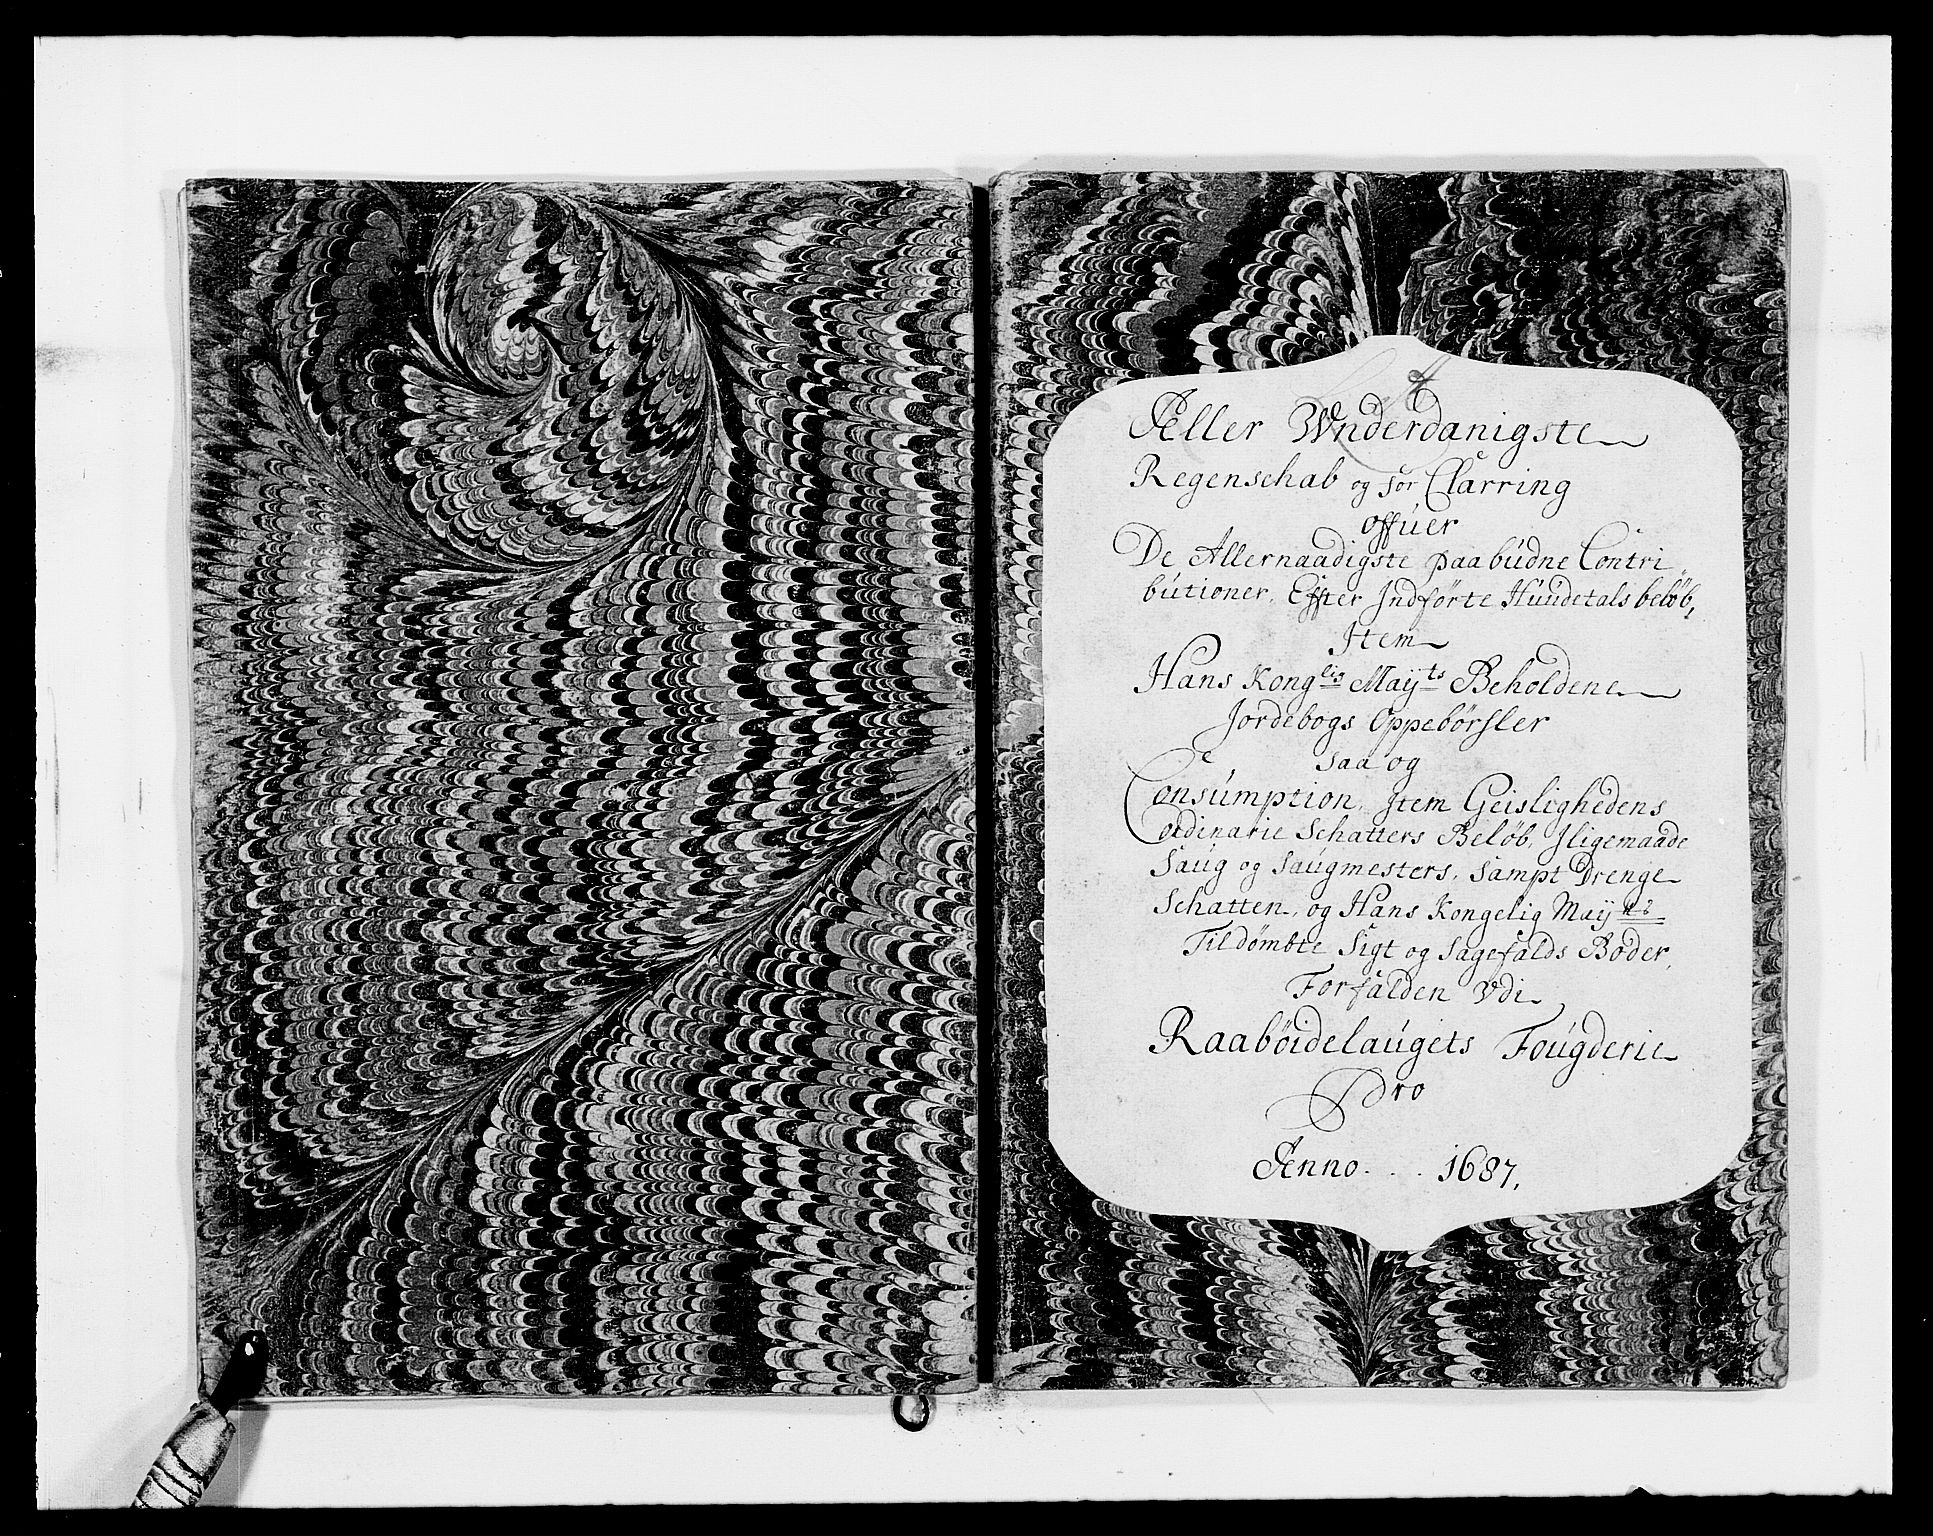 Aller Wnderdanigste
Regenschab og for Clarring
offúer
De Allernaadigste paabúdne Contri
bútioner, Effter Indførte Húúdetals beløb,
Item
Hans Konglig Mayts Beholdene
Jordebogs Oppebörsler
Saa og
Consúmption, Item Geislighedens
ordinarie Schatters Beløb, Iligemaade
Saúg og Saúgmesters, Sampt Drenge
Schatten, og Hans Kongelig Mayts
Tildömbte Sigt og Sagefalds Bøder,
Forfalden Vdi
Raaböidelaúgets Foúgderie
Pro
Anno... 1687,